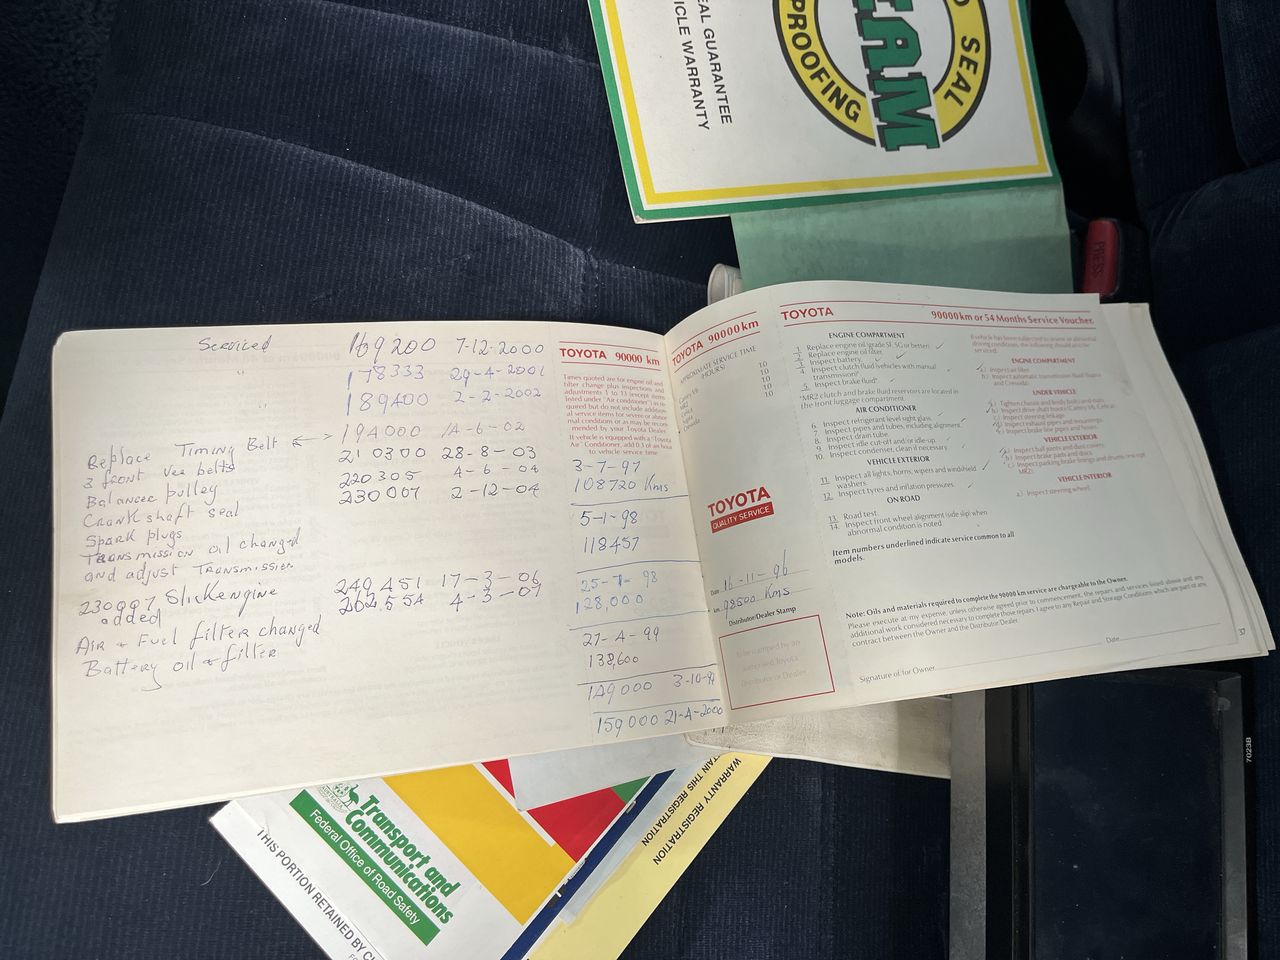 SEAL
PROOFING
TEAM
SEAL GUARANTEE
VEHICLE WARRANTY
PRESS
Serviced 169200 7-12-2000
" 178333 29-4-2001
" 189400 2-2-2002
Replace Timing Belt ↔ 194000 14-6-02
3 front vee belts 210300 28-8-03
Balancer pulley 220305 4-6-04
Crankshaft seal 230007 2-12-04
Spark plugs
Transmission oil changed
and adjust Transmission
230997 Slickengine 249,451 17-3-06
added 264,554 4-3-07
Air & Fuel filter changed
Battery oil & filter
TOYOTA 90000 km
Times quoted are for engine oil and
filter change plus inspections and
adjustments 1 to 13 (except items
listed under "Air conditioner") as re-
quired but do not include addition-
al service items for severe or abnor-
mal conditions or as may be recom-
mended by your Toyota Dealer.
If vehicle is equipped with a "Toyota
Air" Conditioner, add 0.3 of an hour
to vehicle service time.
3-7-97
108720 Kms
5-1-98
118457
25-7-98
128,000
27-4-99
138,600
149000 3-10-99
159000 21-4-2000
TOYOTA 90000km
APPROXIMATE SERVICE TIME
(HOURS)
1.0
1.0
1.0
1.0
1.0
TOYOTA
QUALITY SERVICE
Date 16-11-96
km 98500 Kms
Distributor/Dealer Stamp
To be stamped by an
authorised Toyota
Distributor or Dealer
TOYOTA 90000km or 54 Months Service Voucher.
ENGINE COMPARTMENT
1. Replace engine oil (grade SF, SG or better)
2. Replace engine oil filter.
3. Inspect battery.
4. Inspect clutch fluid (vehicles with manual
transmission)*
5. Inspect brake fluid*
*MR2 clutch and brake fluid reservoirs are located in
the front luggage compartment.
AIR CONDITIONER
6. Inspect refrigerant level sight glass.
7. Inspect pipes and tubes, including alignment.
8. Inspect drain tube.
9. Inspect idle cut-off and/or idle-up.
10. Inspect condenser, clean if necessary.
VEHICLE EXTERIOR
11. Inspect all lights, horns, wipers and windshield
washers.
12. Inspect tyres and inflation pressures.
ON ROAD
13. Road test.
14. Inspect front wheel alignment (side slip) when
abnormal condition is noted.
Item numbers underlined indicate service common to all
models.
If vehicle has been subjected to severe or abnormal
driving conditions, the following should also be
serviced.
ENGINE COMPARTMENT
a) Inspect air filter.
b) Inspect automatic transmission fluid (Supra
and Cressida).
UNDER VEHICLE
a) Tighten chassis and body bolts and nuts.
b) Inspect drive shaft boots (Camry V6, Celica).
c) Inspect steering linkage.
d) Inspect exhaust pipes and mountings.
e) Inspect brake line pipes and hoses.
VEHICLE EXTERIOR
a) Inspect ball joints and dust covers.
b) Inspect brake pads and discs.
c) Inspect parking brake linings and drums (except
MR2).
VEHICLE INTERIOR
a) Inspect steering wheel.
Note: Oils and materials required to complete the 90000 km service are chargeable to the Owner.
Please execute at my expense, unless otherwise agreed prior to commencement, the repairs and services listed above and any
additional work considered necessary to complete those repairs. I agree to any Repair and Storage Conditions which are part of any
contract between the Owner and the Distributor/Dealer.
Signature of/for Owner Date
37
Transport and
Communications
Federal Office of Road Safety
AUSTRALIA
THIS PORTION RETAINED BY
WARRANTY REGISTRATION
TAIN THIS REGISTRATION
7023B